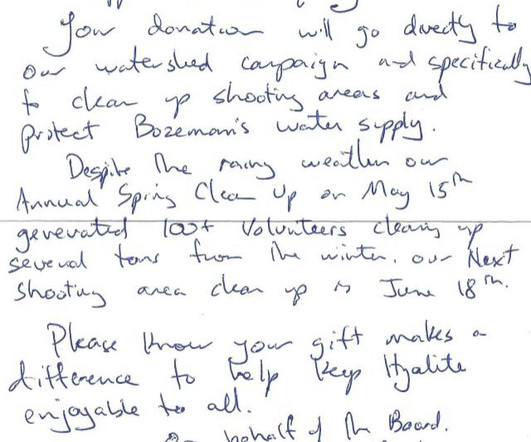 Your donation will go directly to
our watershed campaign and specifically
to clean up shooting areas and
protect Bozeman's water supply.
Despite the rainy weather our
Annual Spring Clean Up on May 15th
generated 100+ Volunteers cleaning up
several tons from the winter. our Next
shooting area clean up is June 18th.
Please know your gift makes a
difference to help keep Hyalite
enjoyable to all.
On behalf of the Board.